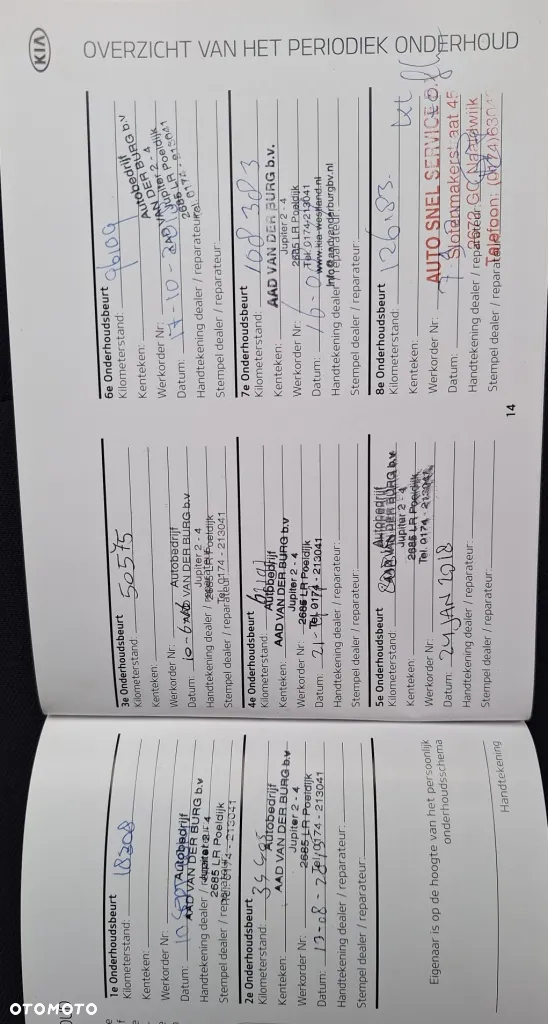 1e Onderhoudsbeurt
Kilometerstand: 18208
Kenteken:
Werkorder Nr:
Autobedrijf
AAD VAN DER BURG b.v
Datum:
Jupiter 2 - 4
Handtekening dealer / reparateur:
2685 LR Poeldijk
Tel. 0174 - 213041
Stempel dealer / reparateur:
2e Onderhoudsbeurt
Kilometerstand:
Autobedrijf
Kenteken:
AAD VAN DER BURG b.v
Jupiter 2 - 4
Werkorder Nr:
2685 LR Poeldijk
Datum:
Tel. 0174 - 213041
Handtekening dealer / reparateur:
Stempel dealer / reparateur:
Eigenaar is op de hoogte van het persoonlijk
onderhoudsschema
Handtekening
KIA
OVERZICHT VAN HET PERIODIEK ONDERHOUD
3e Onderhoudsbeurt
Kilometerstand: 50575
Kenteken:
Werkorder Nr:
Autobedrijf
Datum:
AAD VAN DER BURG b.v
Jupiter 2 - 4
Handtekening dealer / reparateur:
2685 LR Poeldijk
Tel. 0174 - 213041
Stempel dealer / reparateur:
4e Onderhoudsbeurt
Kilometerstand:
Autobedrijf
Kenteken:
AAD VAN DER BURG b.v
Jupiter 2 - 4
Werkorder Nr:
2685 LR Poeldijk
Datum: 21-
Tel. 0174 - 213041
Handtekening dealer / reparateur:
Stempel dealer / reparateur:
5e Onderhoudsbeurt
Autobedrijf
Kilometerstand:
AAD VAN DER BURG b.v
Jupiter 2 - 4
Kenteken:
2685 LR Poeldijk
Tel. 0174 - 213041
Werkorder Nr:
Datum: 24 JAN 2018
Handtekening dealer / reparateur:
Stempel dealer / reparateur:
6e Onderhoudsbeurt
Kilometerstand: 96109
Kenteken:
Autobedrijf
AAD VAN DER BURG b.v
Werkorder Nr:
Jupiter 2 - 4
2685 LR Poeldijk
Datum: 17-10-
0174 - 213041
Handtekening dealer / reparateur:
Stempel dealer / reparateur:
7e Onderhoudsbeurt
Kilometerstand: 108383
AAD VAN DER BURG b.v.
Kenteken:
Jupiter 2-4
Werkorder Nr:
2685 LR Poeldijk
Tel. 0174/213041
Datum: 16-
www.kia-westland.nl
Info@aadvanderburgbv.nl
Handtekening dealer / reparateur:
Stempel dealer / reparateur:
8e Onderhoudsbeurt
Kilometerstand: 126.83
Kenteken:
Werkorder Nr:
AUTO SNEL SERVICE
Datum:
Slotenmakerstraat 45
Handtekening dealer / reparateur:
2672 GC Naaldwijk
Stempel dealer / reparateur:
Telefoon:
14
OTOMOTO